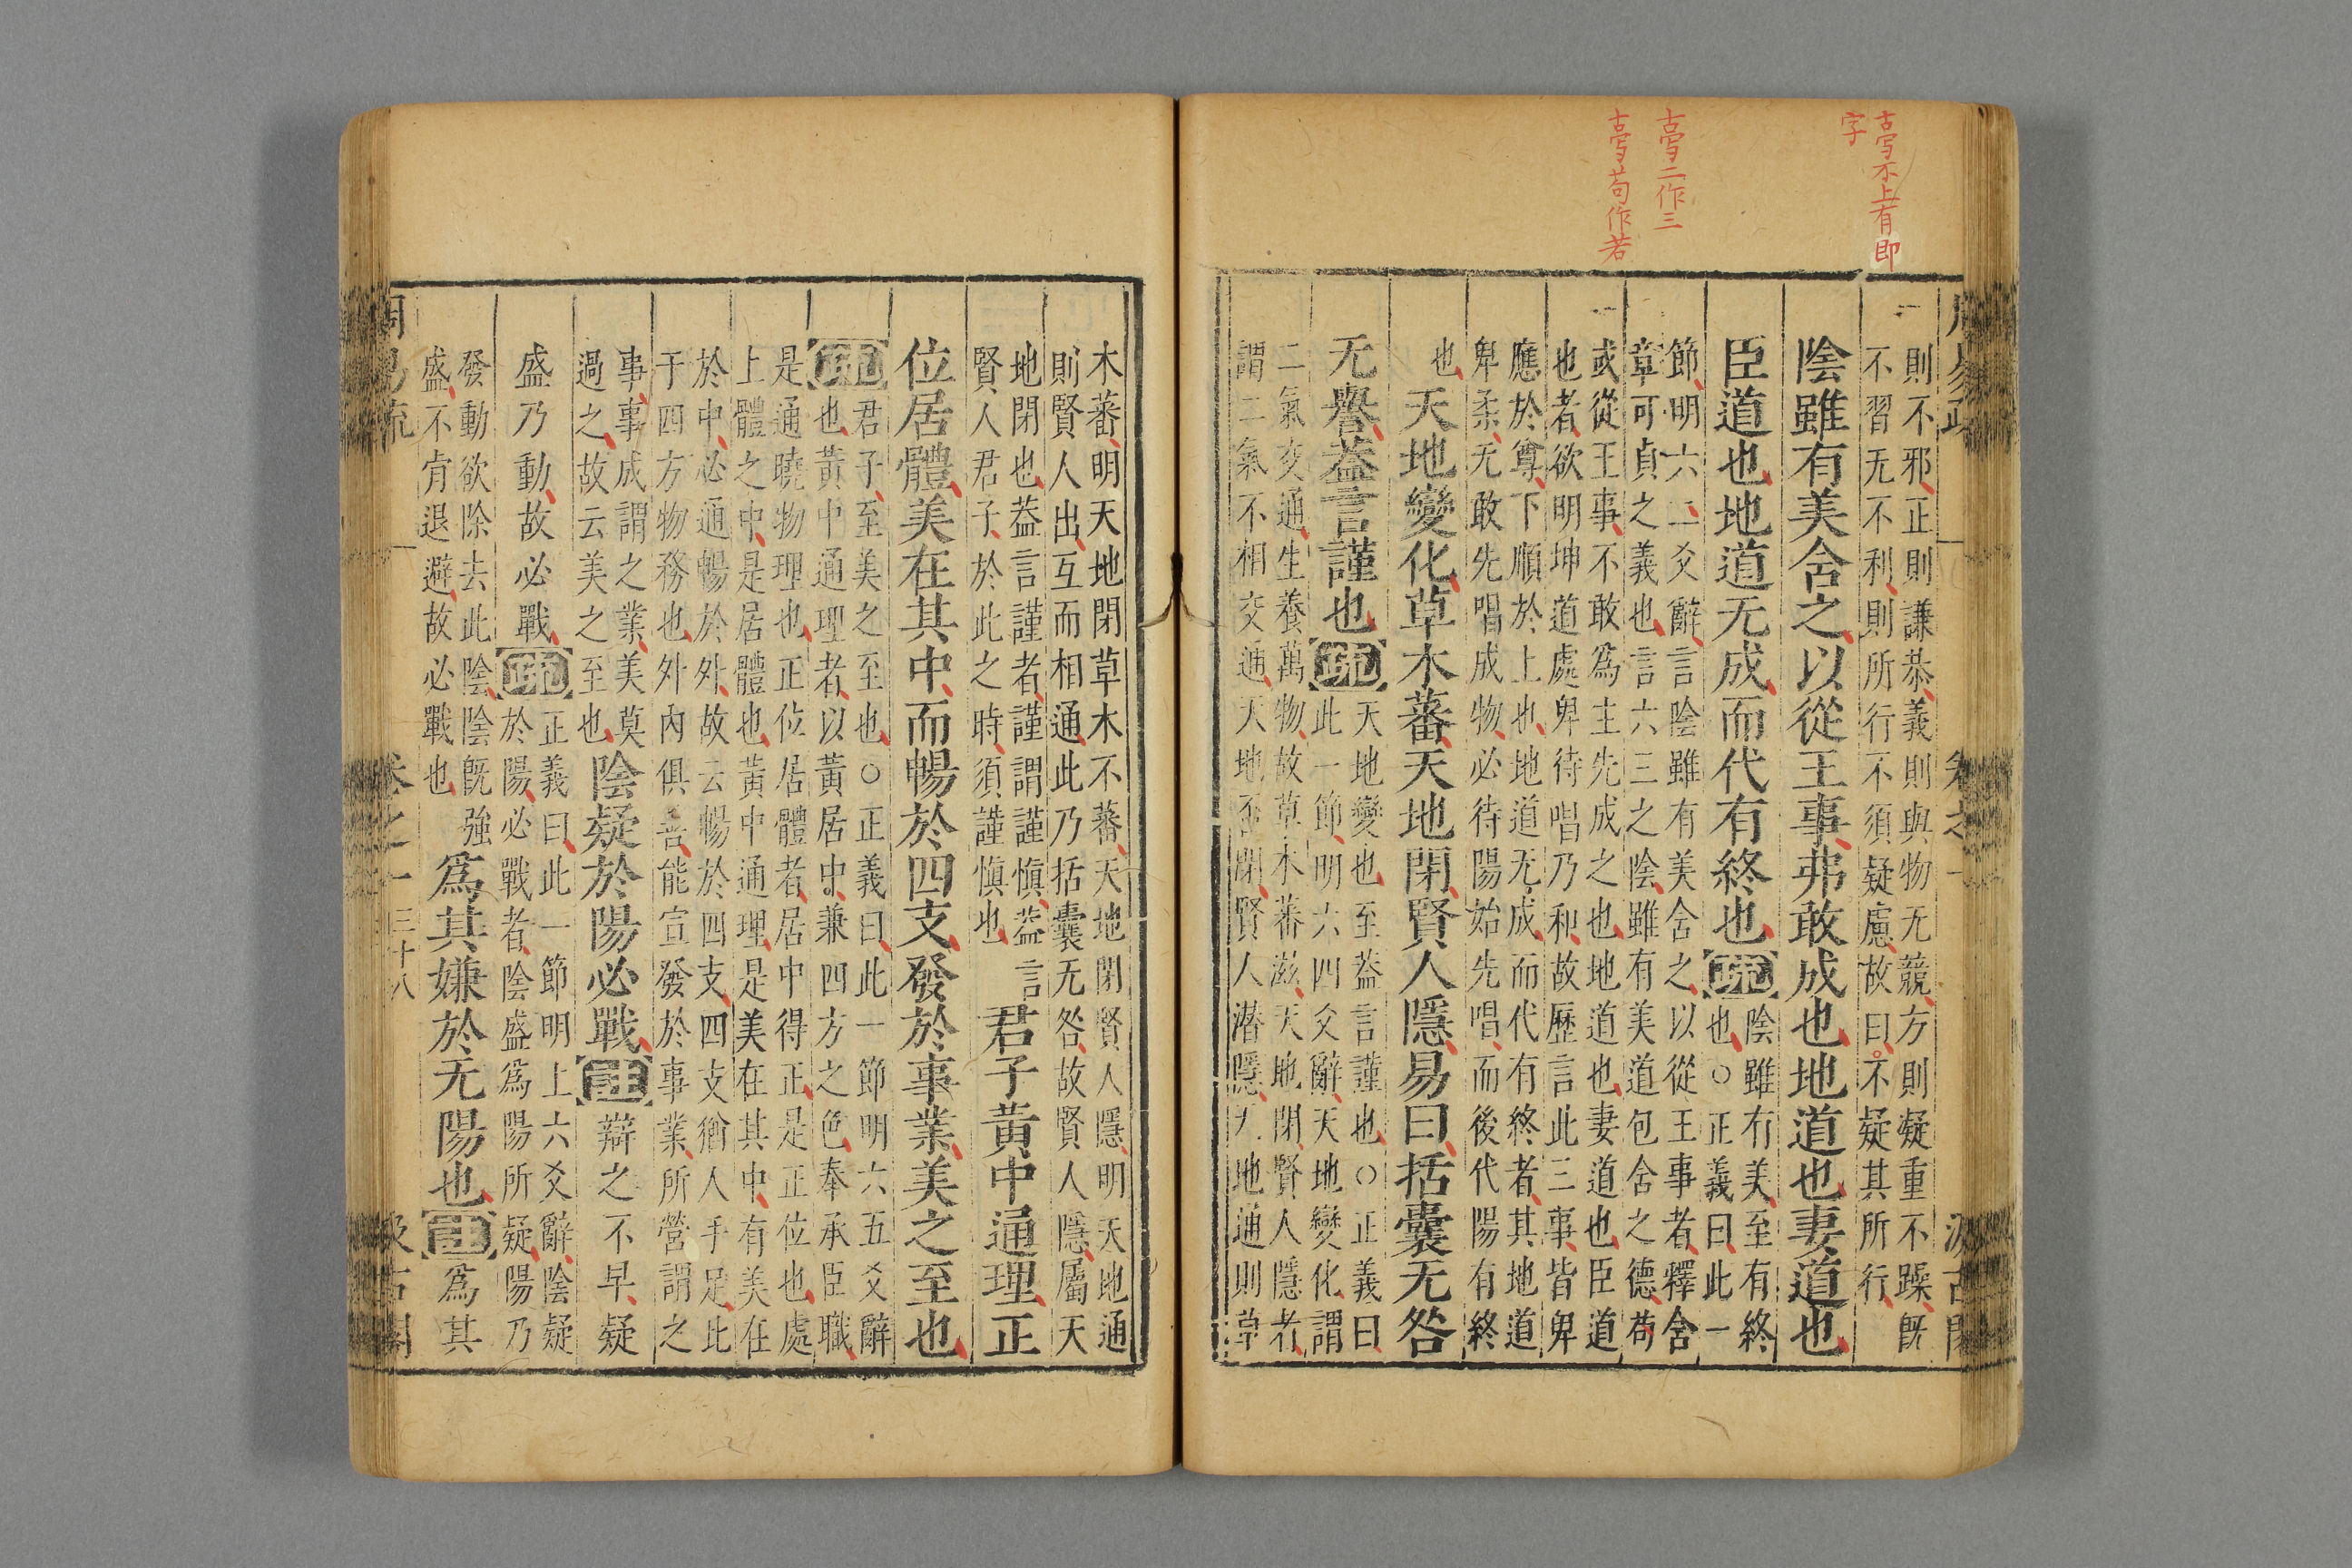 古寫不上有即
字
古寫二作三
古寫苟作若
則不邪正則謙恭義則與物无競方則疑重不躁旣
不習无不利則所行不須疑慮故曰不疑其所行
陰雖有美含之以從王事弗敢成也地道也妻道也
臣道也地道无成而代有終也疏
陰雖有美至有終
也○正義曰此一
節明六二爻辭言陰雖有美含之以從王事者釋含
章可貞之義也言六三之陰雖有美道包含之德苟
或從王事不敢爲主先成之也地道也妻道也臣道
也者欲明坤道處卑待唱乃和故歷言此三事皆卑
應於尊下順於上也地道无成而代有終者其地道
卑柔无敢先唱成物必待陽始先唱而後代陽有終
也天地變化草木蕃天地閉賢人隱易曰括囊无咎
无譽葢言謹也疏
天地變也至葢言謹也○正義曰
此一節明六四爻辭天地變化謂
二氣交通生養萬物故草木蕃滋天地閉賢人隱者
謂二氣不相交通天地否閉賢人潛隱天地通則草
木蕃明天地閉草木不蕃天地閉賢人隱明天地通
則賢人出互而相通此乃括囊无咎故賢人隱屬天
地閉也葢言謹者謹謂謹愼葢言
賢人君子於此之時須謹愼也
君子黃中通理正
位居體美在其中而暢於四支發於事業美之至也
疏
君子至美之至也○正義曰此一節明六五爻辭
也黃中通理者以黃居中兼四方之色奉承臣職
是通曉物理也正位居體者居中得正是正位也處
上體之中是居體也黃中通理是美在其中有美在
於中必通暢於外故云暢於四支四支猶人手足此
于四方物務也外內俱善能宣發於事業所營謂之
事事成謂之業美莫
過之故云美之至也
陰疑於陽必戰註
辯之不早疑
盛乃動故必戰疏
正義曰此一節明上六爻辭陰疑
於陽必戰者陰盛爲陽所疑陽乃
發動欲除去此陰陰旣強
盛不肯退避故必戰也
爲其嫌於无陽也註
爲其
周易疏
卷之一
三十八
汲古閣